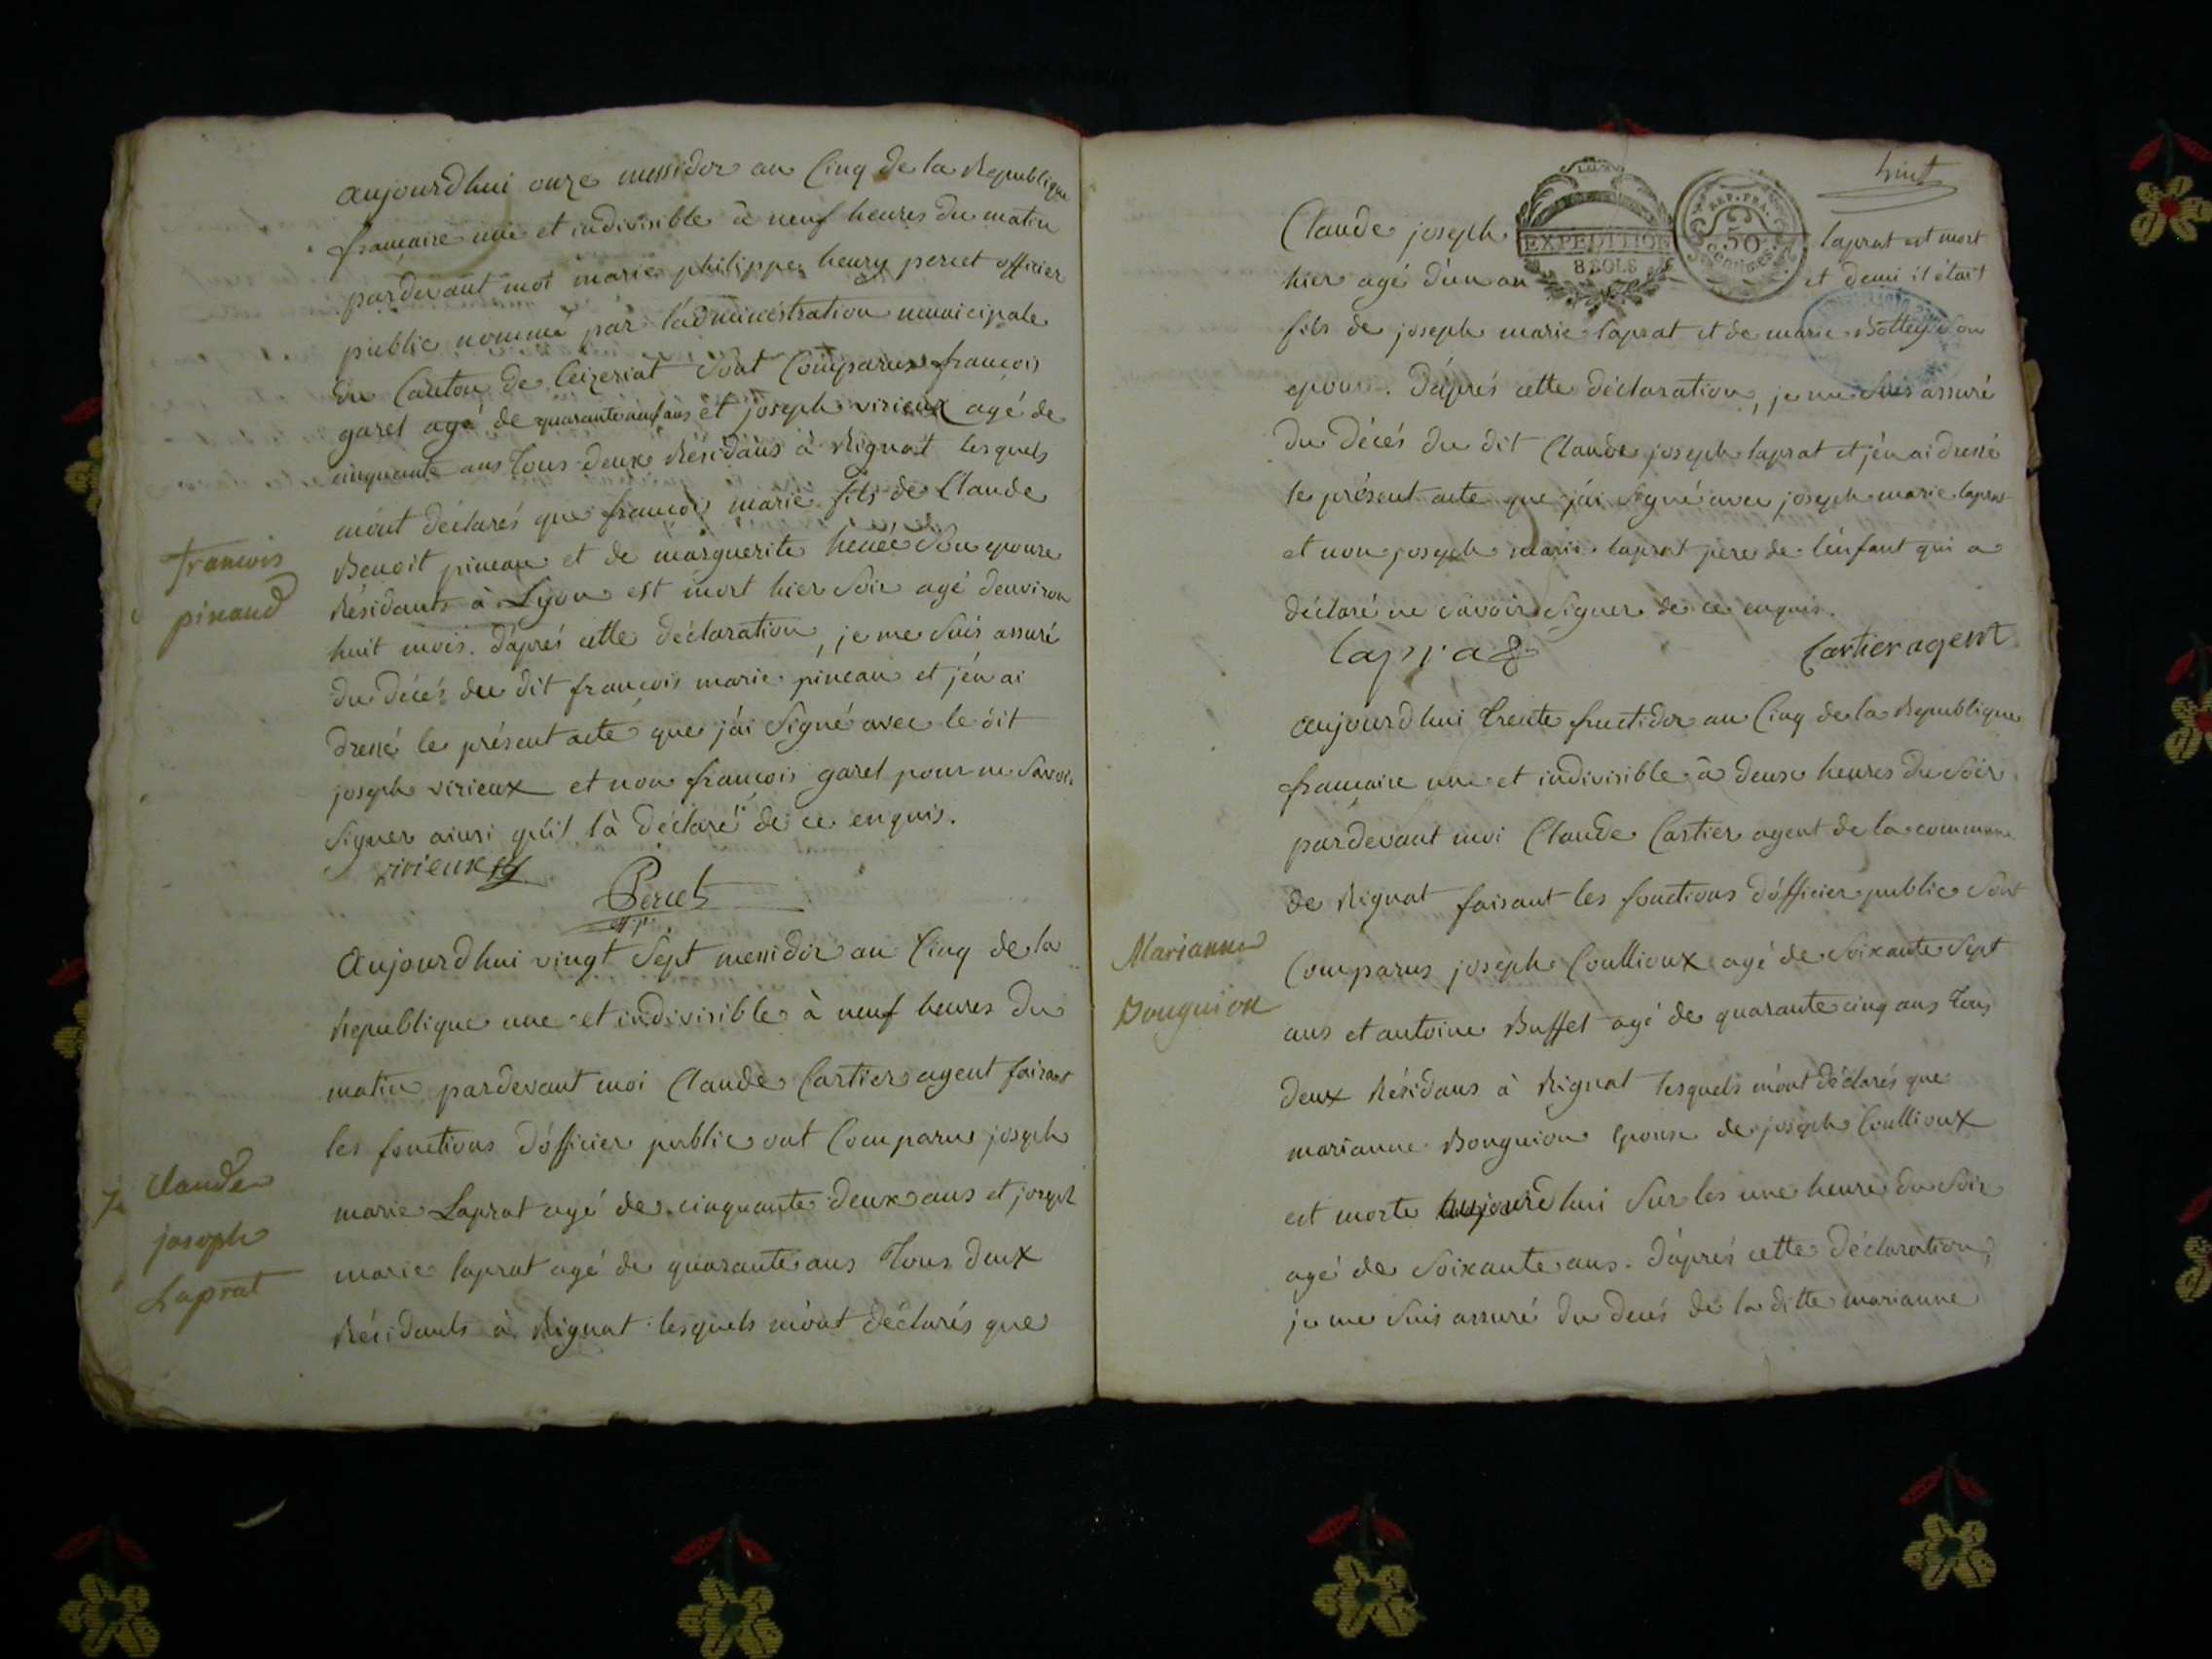 aujourdhui onze messidor an Cinq de la Republique
francaise une et indivisible à neuf heures du matin
pardevant moi marie philippe henry percet officier
public nommé par l'administration municipale
du Canton de Ceizeriat Sont Comparus françois
garel agé de quarante neuf ans et joseph virieux agé de
cinquante ans tous deux Résidans à Rignat lesquels
m'ont déclarés que francois marie fils de Claude
Benoit pineau et de marguerite son epouse
Résidants à Lyon est mort hier Soir agé d'environ
huit mois. d'aprés cette déclaration, je me suis assuré
du décés du dit françois marie pineau et j'en ai
dressé le présent acte que j'ai Signé avec le dit
joseph virieux et non françois garel pour ne Savoir
Signer ainsi qu'il l'à déclaré de ce enquis.
virieux
Percet
francois
pinaud
Aujourdhui vingt Sept messidor an Cinq de la
Republique une et indivisible à neuf heures du
matin pardevant moi Claude Cartier agent faisant
les fonctions d'officier public ont Comparus joseph
marie Laprat agé de cinquante deux ans et joseph
marie laprat agé de quarante ans Tous deux
Résidants à Rignat lesquels m'ont déclarés que
Claude
joseph
Laprat
huit
EXPEDITION
8 SOLS
REP. FRA.
50
CENTIMES
Claude joseph laprat est mort
hier agé d'un an et demi il était
fils de joseph marie laprat et de marie Bottey Son
epouse. D'aprés cette déclaration, je me Suis assuré
du décés du dit Claude joseph laprat et j'en ai dressé
le présent acte que j'ai Signé avec joseph marie laprat
et non joseph marie laprat pere de l'enfant qui a
déclaré ne savoir Signer de ce enquis.
laprat Cartier agent
aujourd hui trente fructidor an Cinq de la Republique
francaise une et indivisible à deux heures du Soir
pardevant moi Claude Cartier agent de la commune
de Rignat faisant les fonctions d'officier public Sont
Comparus joseph Coullioux agé de Soixante Sept
ans et antoine Buffet agé de quarante cinq ans Tous
deux Résidans à Rignat lesquels m'ont déclarés que
marianne Bonguion épouse de joseph Coullioux
est morte aujourd hui Sur les une heure du Soir
agé de Soixante ans. D'aprés cette déclaration,
je me Suis assuré du decés de la ditte marianne
Marianne
Bonguion